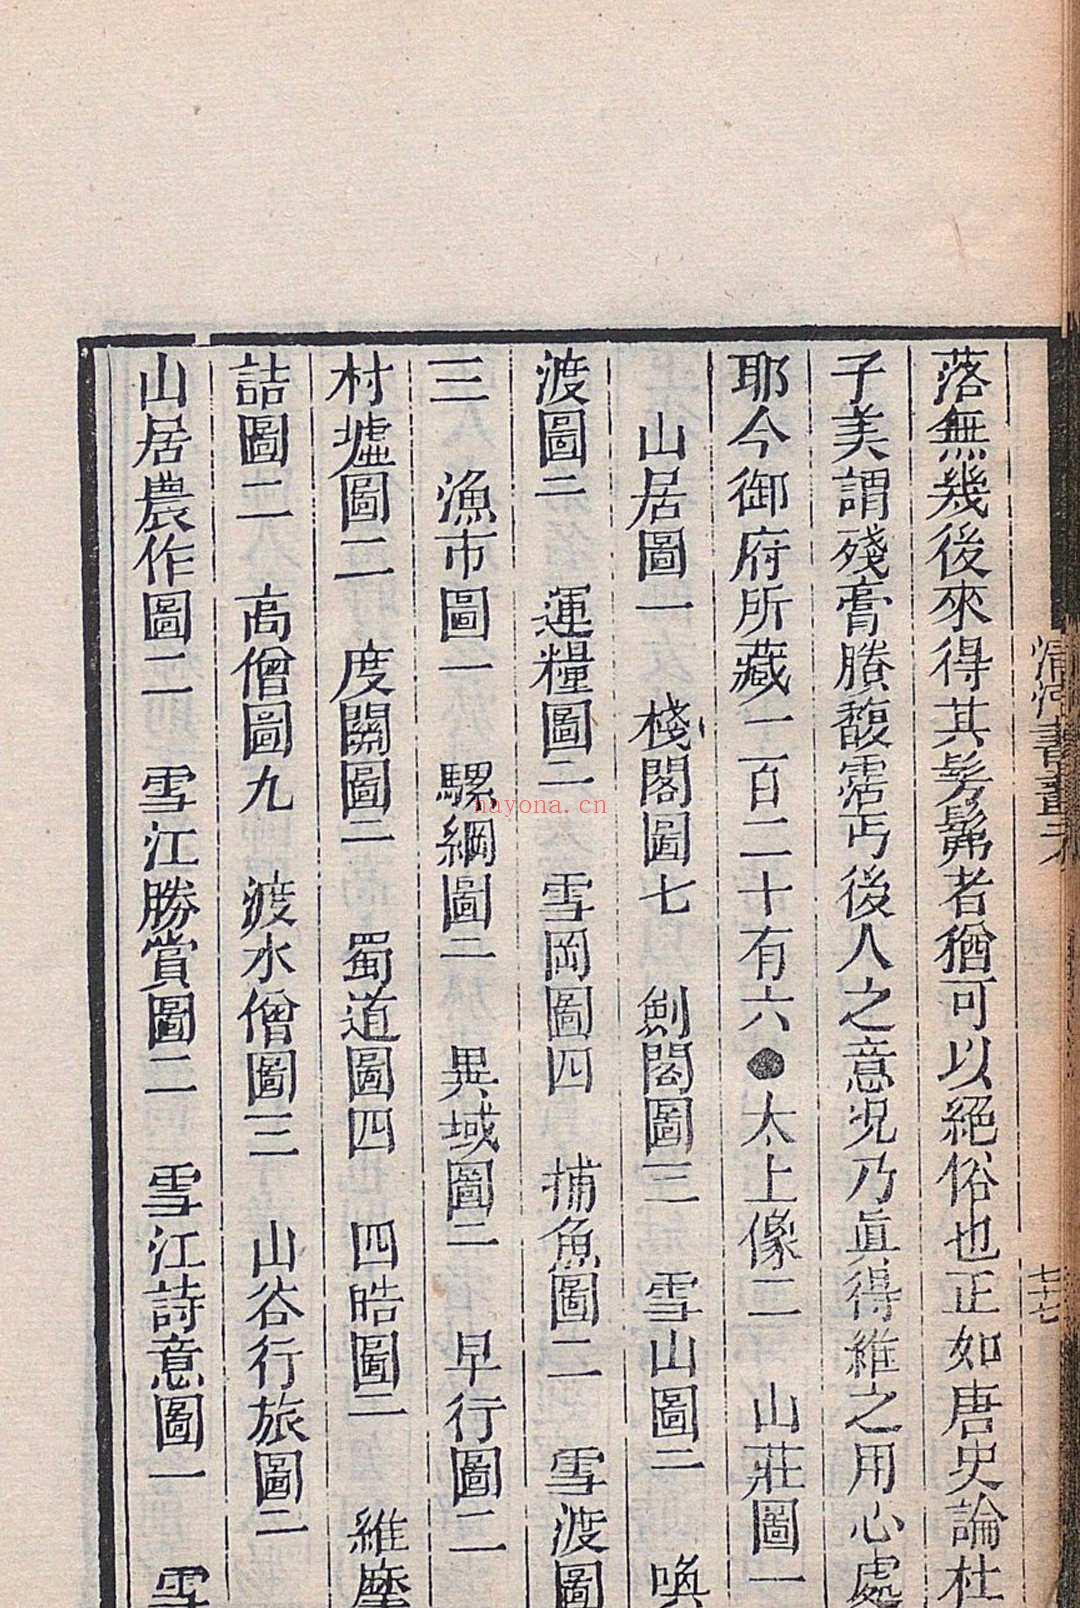 落無幾後來得其髣髴者猶可以絕俗也正如唐史論杜
子美謂殘膏賸馥霑丐後人之意況乃眞得維之用心處
耶今御府所藏一百二十有六●太上像二　山莊圖一
山居圖一　棧閣圖七　劍閣圖三　雪山圖二　喚
渡圖二　運糧圖二　雪岡圖四　捕魚圖二　雪渡圖
三　漁市圖一　騾綱圖二　異域圖二　早行圖二
村墟圖二　度關圖二　蜀道圖四　四皓圖二　維摩
詰圖二　高僧圖九　渡水僧圖三　山谷行旅圖二
山居農作圖二　雪江勝賞圖二　雪江詩意圖一　雪
清河書畫
七十七
nayona.cn